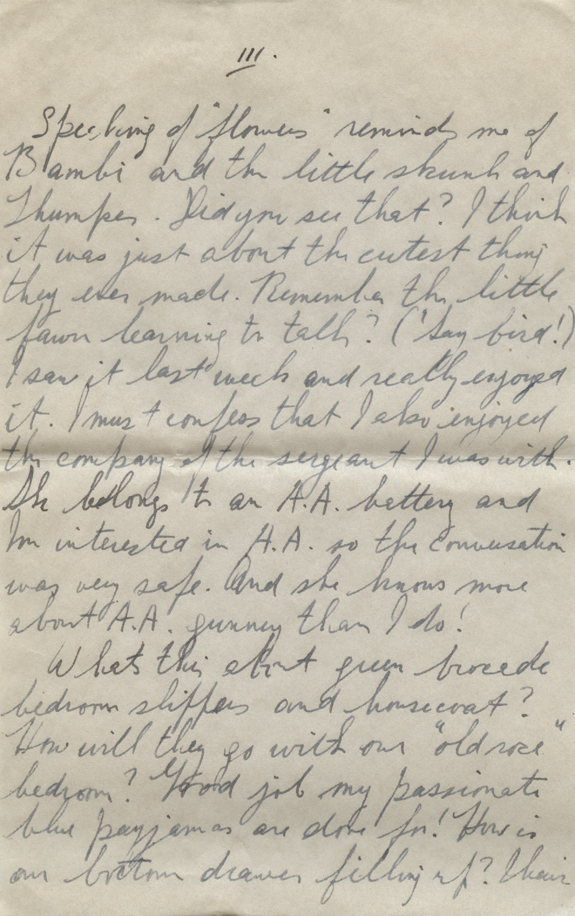 III.
Speaking of "flowers" reminds me of
Bambi and the little skunk and
Thumper. Did you see that? I think
it was just about the cutest thing
they ever made. Remember the little
fawn learning to talk? ('Say bird!')
I saw it last week and really enjoyed
it. I must confess that I also enjoyed
the company of the sergeant I was with.
She belongs to an A.A. battery and
I'm interested in A.A. so the conversation
was very safe. And she knows more
about A.A. gunnery than I do!
Whats this about green brocade
bedroom slippers and housecoat?
How will they go with our "old rose"
bedroom? Good job my passionate
blue payjamas are done for! How is
our bottom drawer filling up?